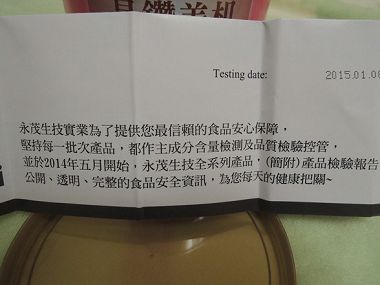 晶鑽美肌
Testing date:
2015.01.08
永茂生技實業為了提供您最信賴的食品安心保障，
堅持每一批次產品，都作主成分含量檢測及品質檢驗控管，
並於2014年五月開始，永茂生技全系列產品，(簡附)產品檢驗報告
公開、透明、完整的食品安全資訊，為您每天的健康把關~